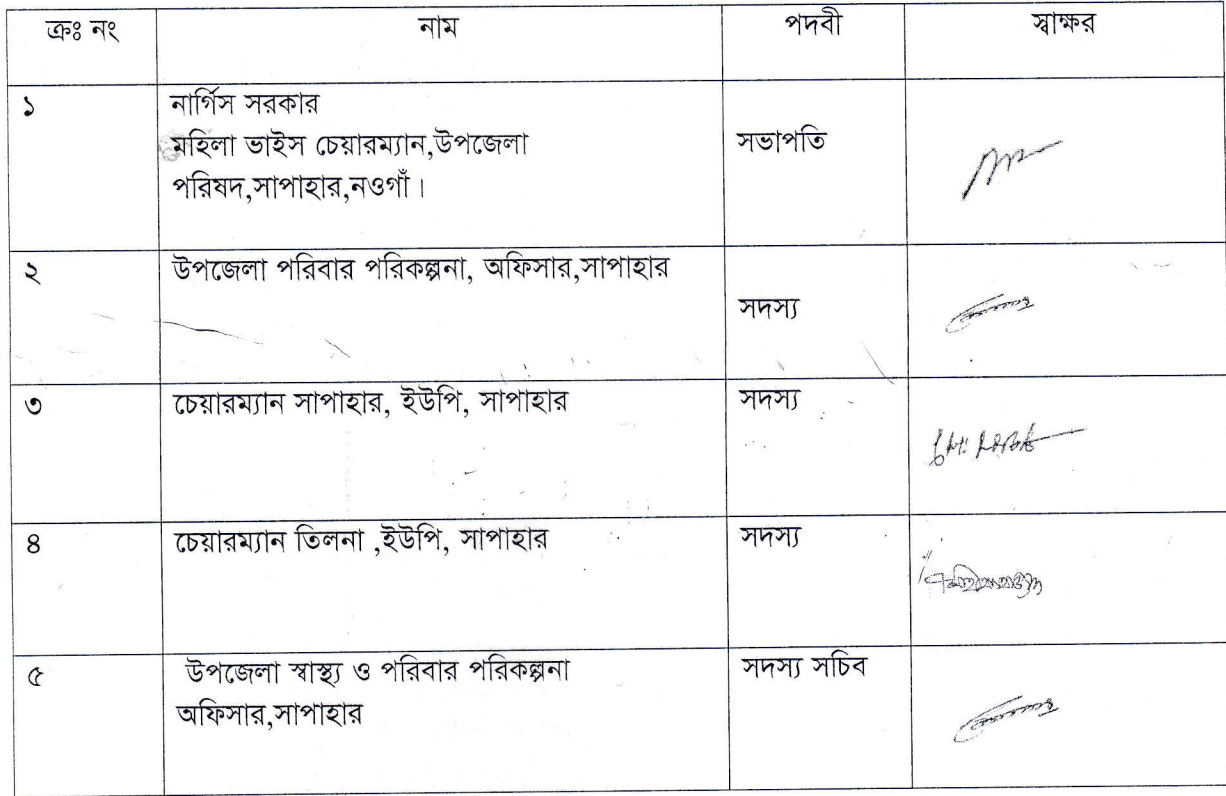 ক্রঃ নং নাম পদবী স্বাক্ষর
১ নার্গিস সরকার
মহিলা ভাইস চেয়ারম্যান,উপজেলা সভাপতি
পরিষদ,সাপাহার,নওগাঁ।
২ উপজেলা পরিবার পরিকল্পনা, অফিসার,সাপাহার
সদস্য
৩ চেয়ারম্যান সাপাহার, ইউপি, সাপাহার সদস্য
৪ চেয়ারম্যান তিলনা ,ইউপি, সাপাহার সদস্য
৫ উপজেলা স্বাস্থ্য ও পরিবার পরিকল্পনা সদস্য সচিব
অফিসার,সাপাহার